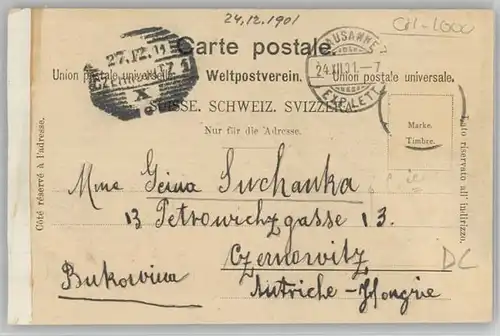 24.12.1901
CH-1000
Carte postale.
27.12.
CZERNOWITZ 1
X
LAUSANNE
24.XII.01.-7
EXP. LETT.
Union postale universelle.
Weltpostverein.
Union postale universale.
SUISSE. SCHWEIZ. SVIZZERA.
Nur für die Adresse.
Marke.
Timbre.
Côté réservé à l'adresse.
Lato riservato all' indirizzo.
Mme Suchanka
13 Petrowichzgasse 13.
Czernowitz
DC
Bukowina
Autriche-Hongrie